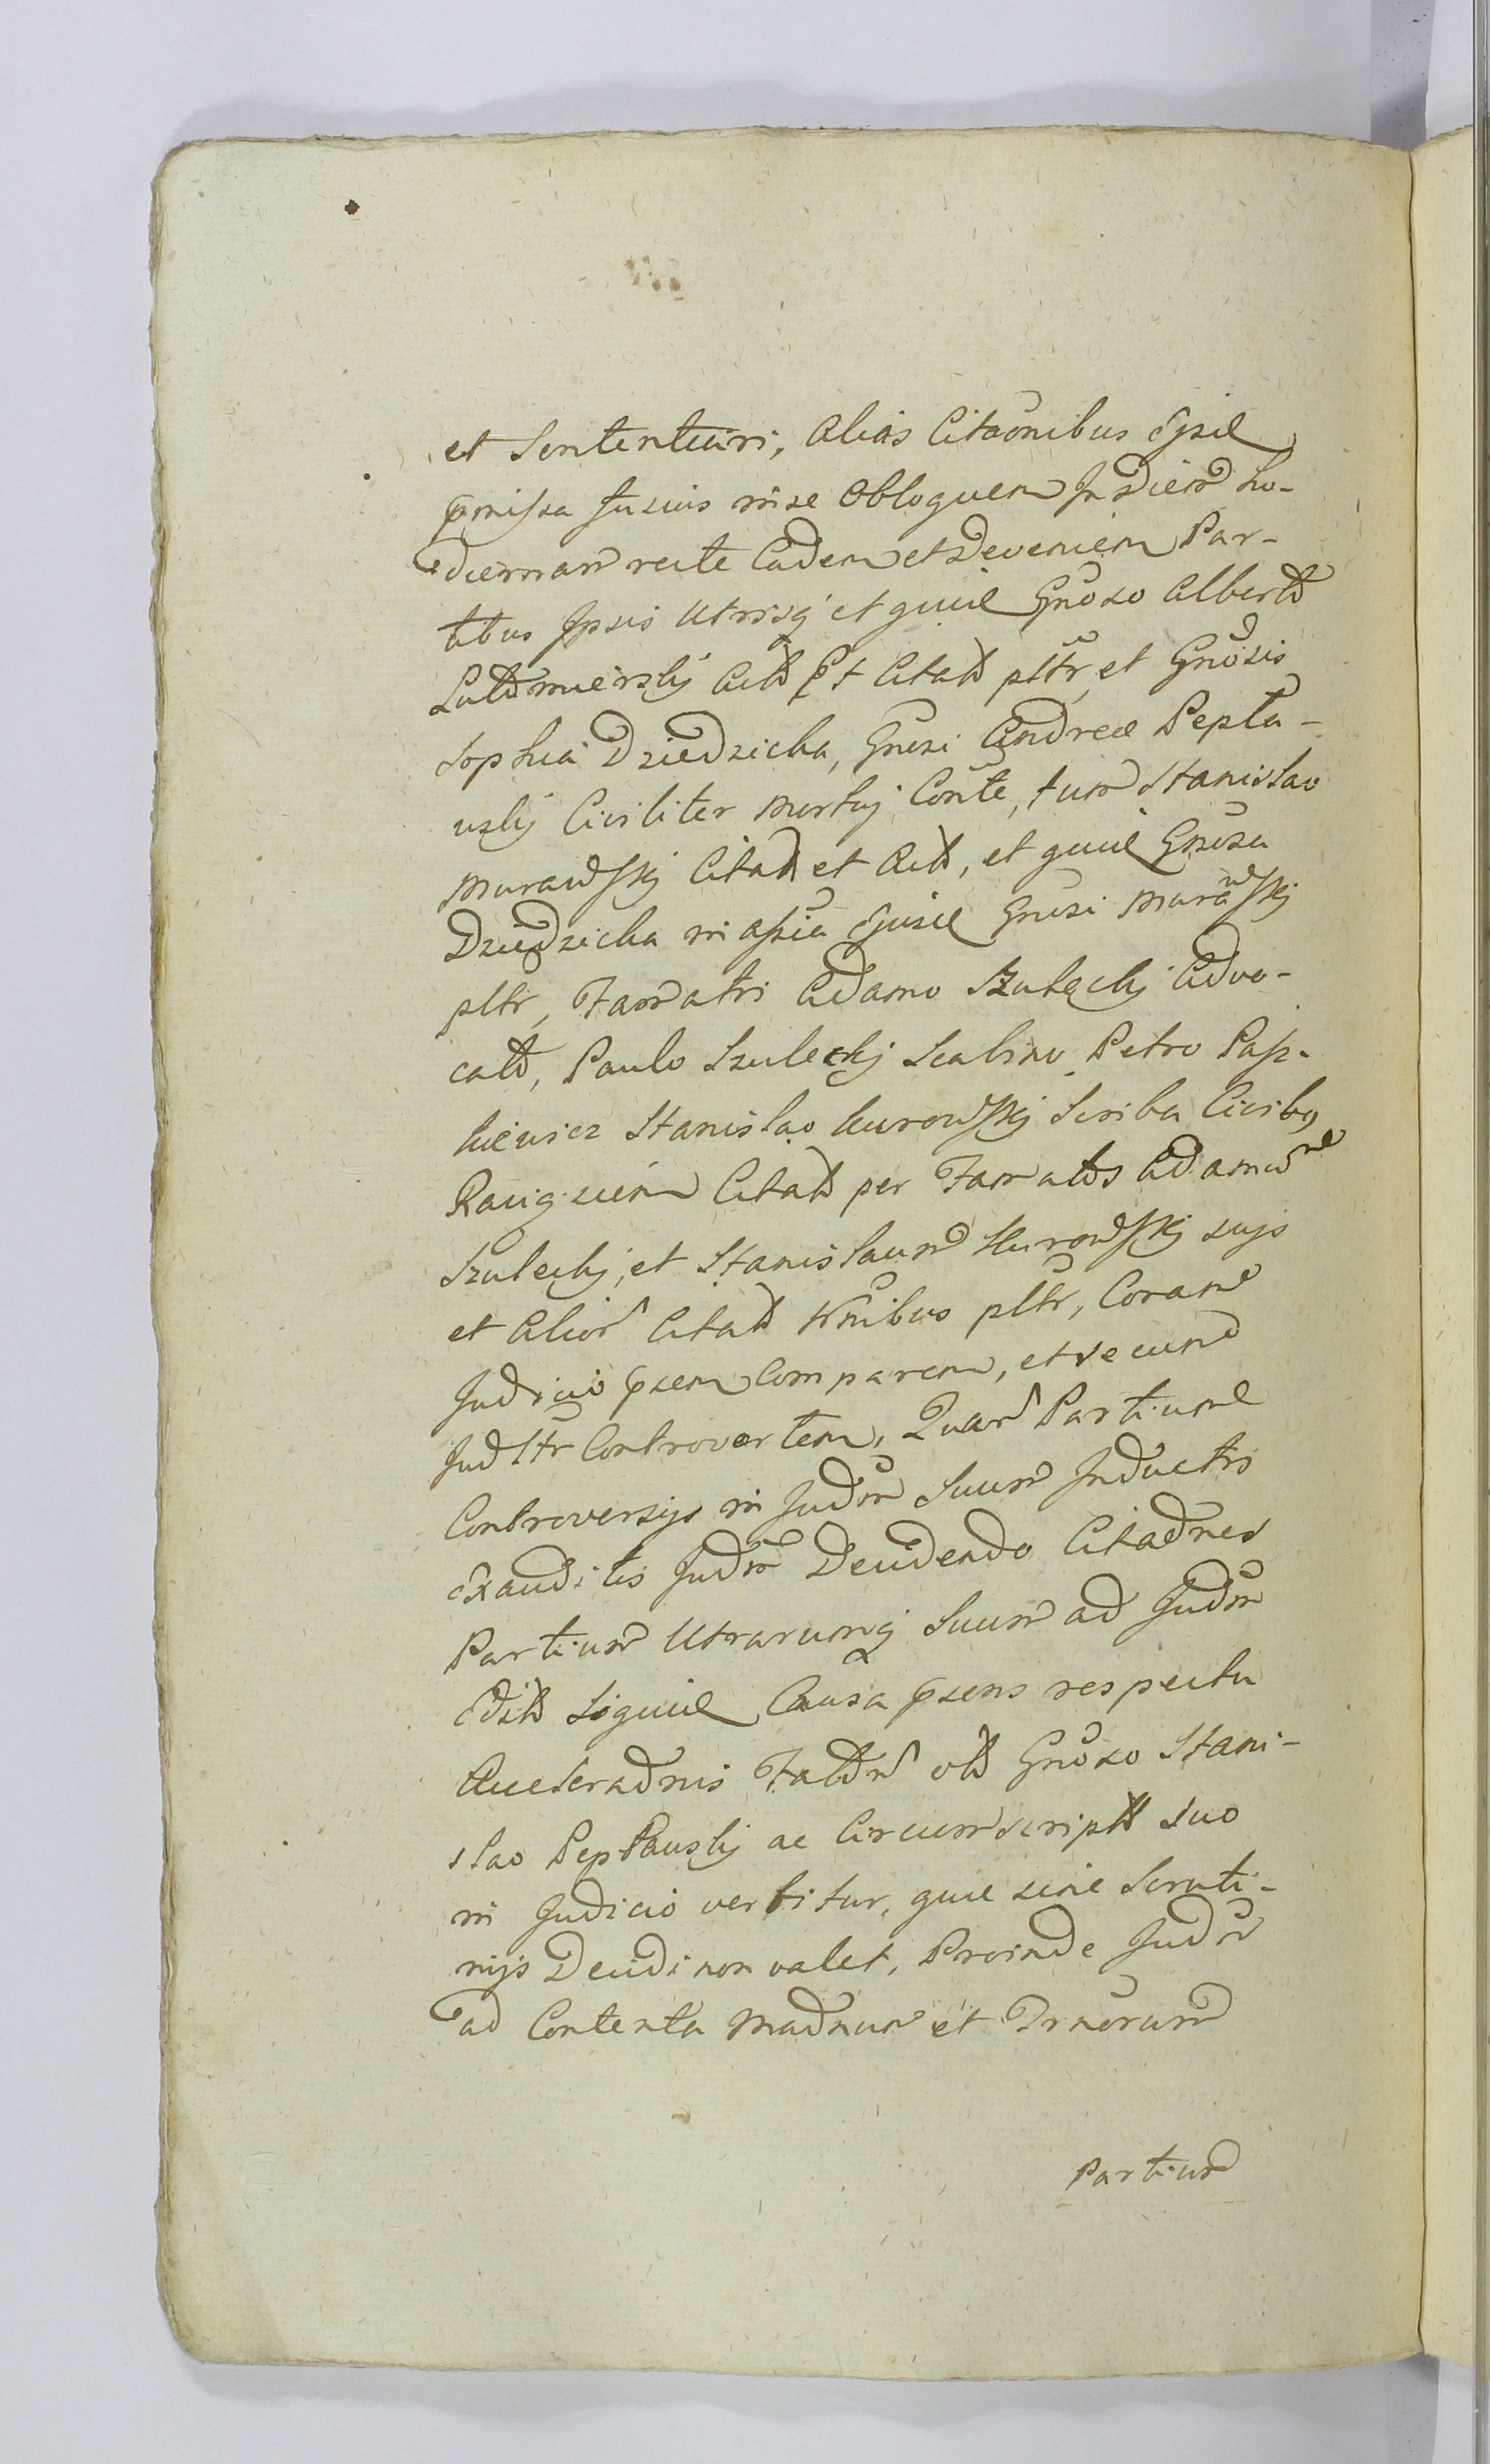 et Sententiari, Alias Citaõnibus Ejsd
pmissa fusius in se Obloquen In diem ho-
diernam recte Caden et Devenien Par-
tibus Ipsis Utrisq et quid Gnõso Alberto
Lutomierskj Act Et Citato pltr, et Gnõsis
Sophia Dziedzicka, Gnõsi Andreæ Pepło-
wskj Civiliter mortuj Conte, tum Stanislao
Murawskj Citato et Act, et quid Gnõsa
Dziedzicka in assia Ejusd Gnõsi Murawskj
pltr, Famatri Adamo Szuleckj Advo-
cato, Paulo Szuleckj Scabino, Petro Pasz-
kiewicz Stanislao Kurowskj Scriba Civibq
Ravq suem Citato per Famatos Adamum
Szuleckj, et Stanislaum Kurowskj sujs
et Alior Citat Nnibus pltr, Coram
Judicio psen Comparen, et secum
Judltr Controverten, Quar Partium
Controversijs in Judm Suum Inductis
Exauditis Judm Decidendo Citaõnes
Partium Utrarumq Suum ad Judm
Edit Siquid Causa psens respectu
Acceleraõnis Fator olt Gnõso Stani-
slao Pepłowskj ac Circumscript suo
in Judicio vertitur, quæ sine Scruti-
nijs Decidi non valet, Proinde Judm
ad Contenta Maõnum et Trnorum
Partium